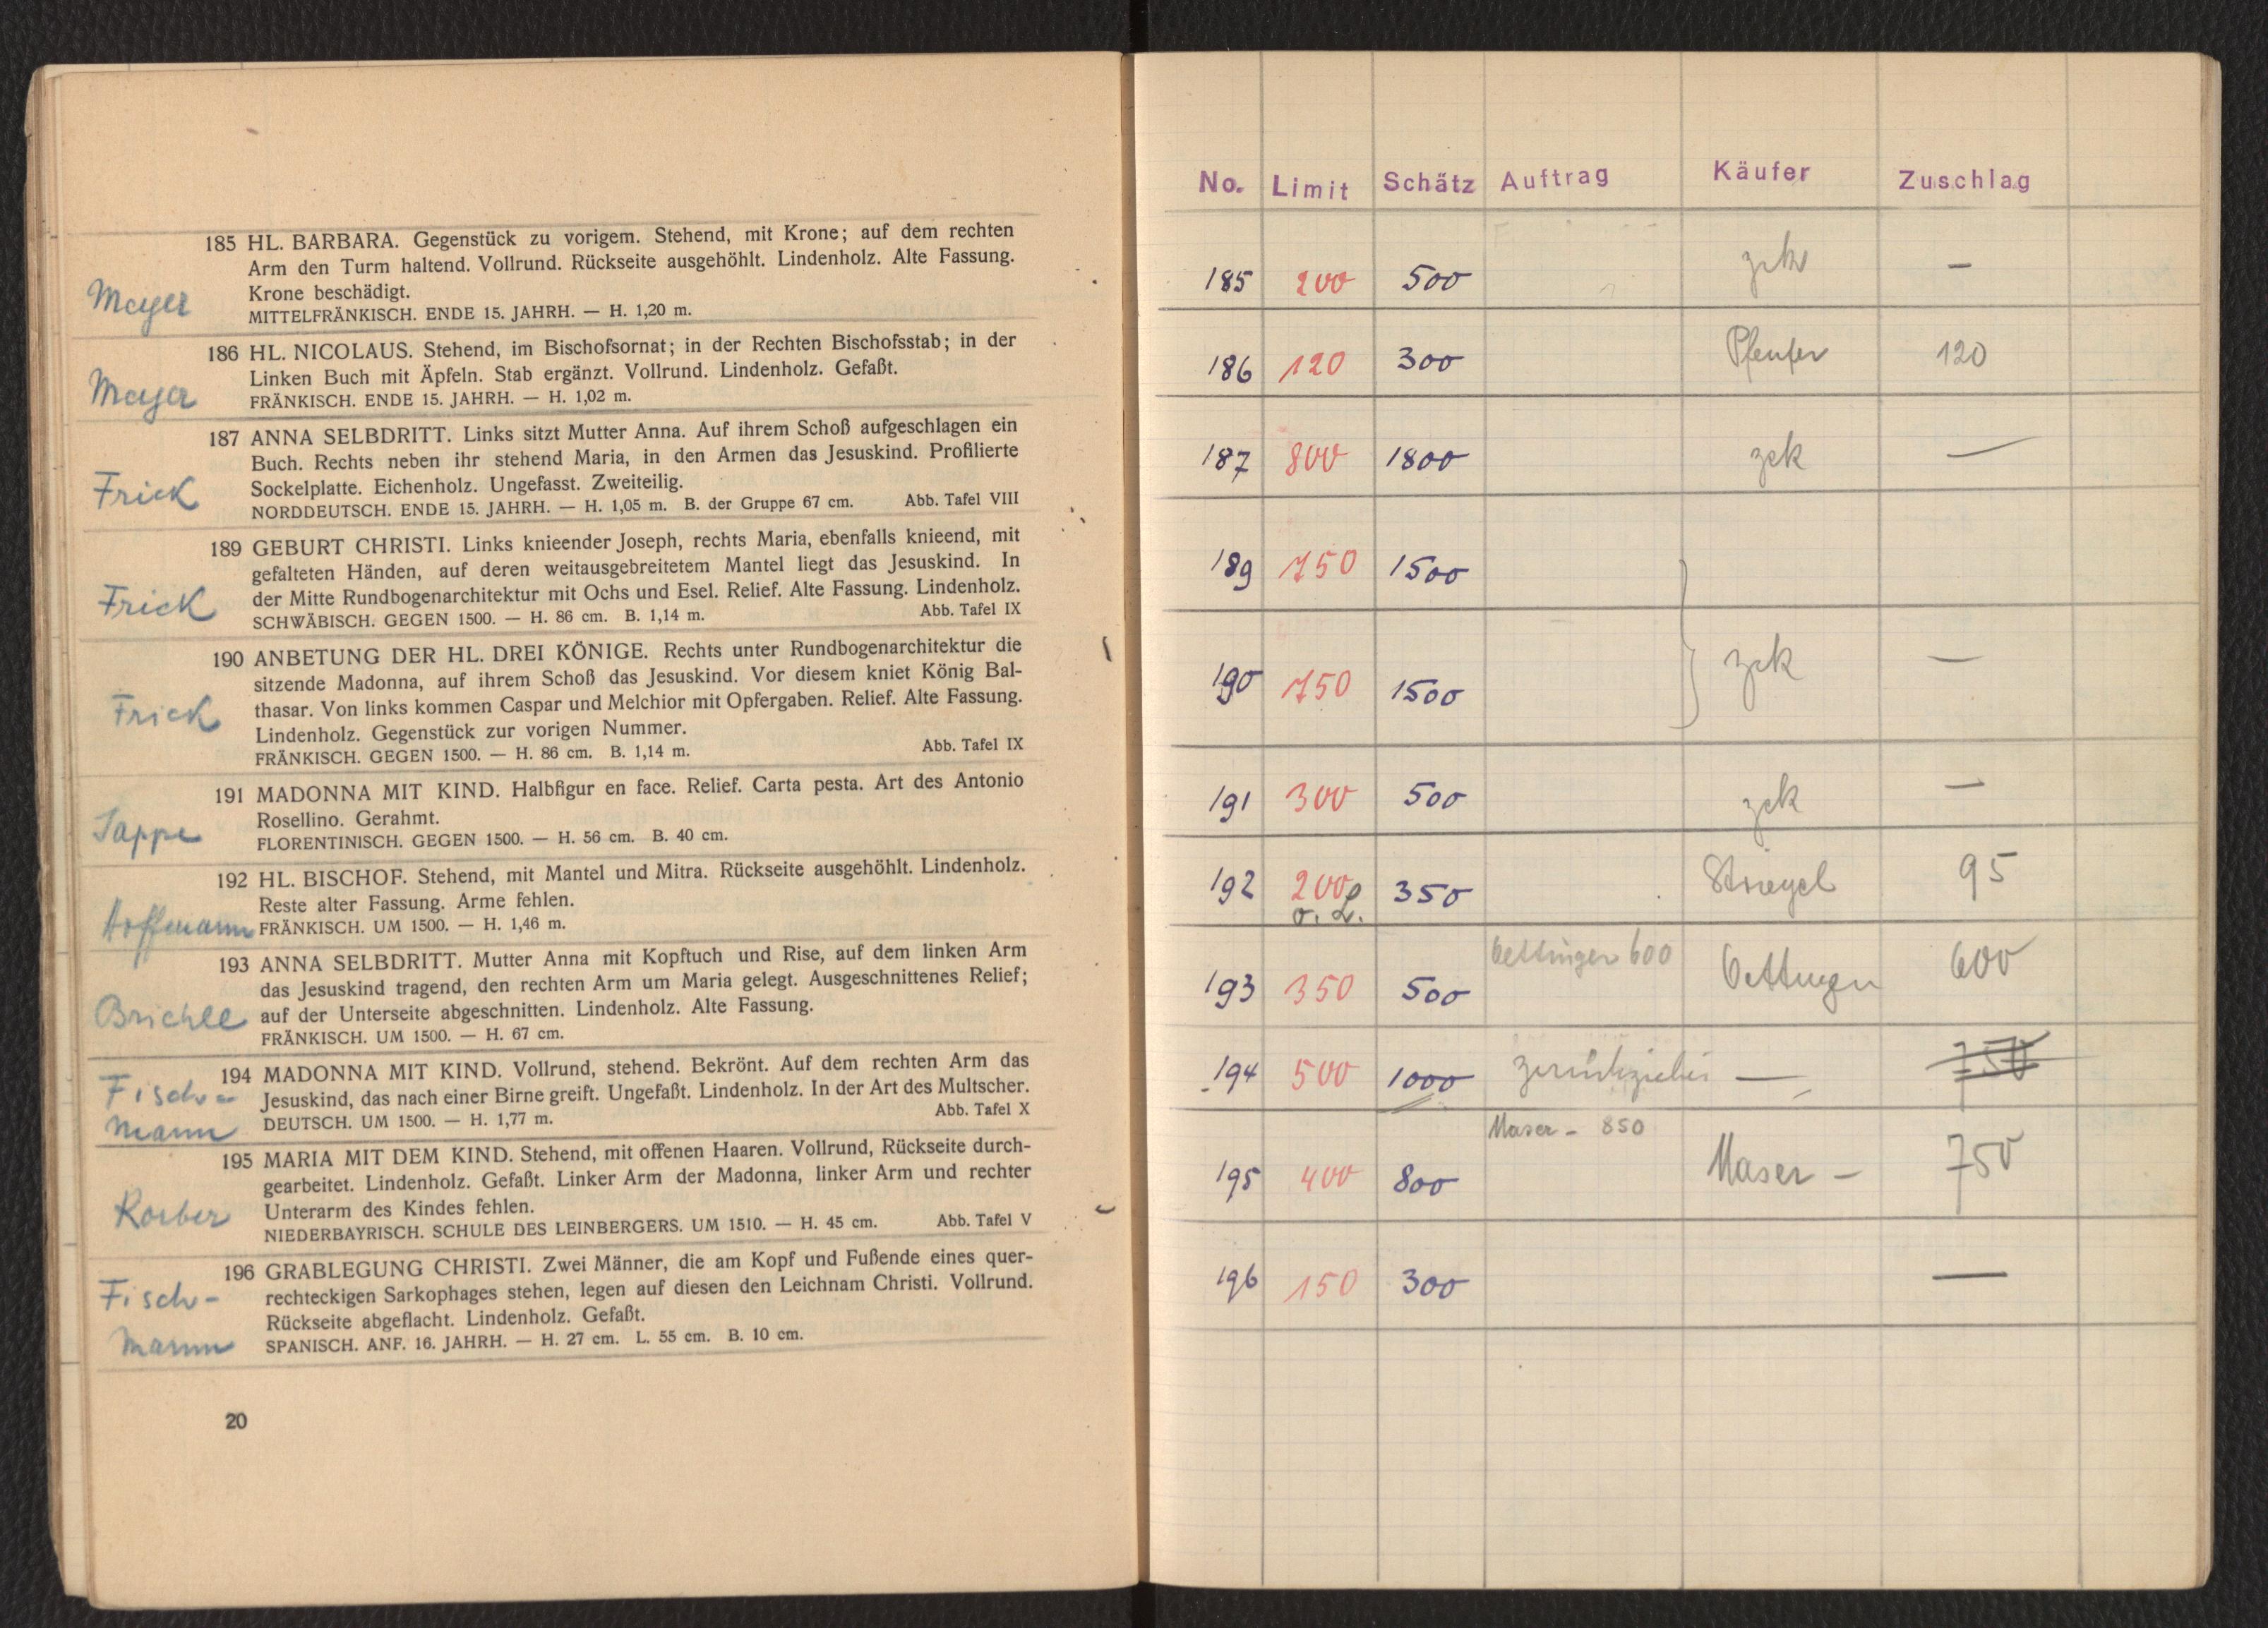 185 HL. BARBARA. Gegenstück zu vorigem. Stehend, mit Krone; auf dem rechten
Arm den Turm haltend. Vollrund. Rückseite ausgehöhlt. Lindenholz. Alte Fassung.
Krone beschädigt.
Meyer
MITTELFRÄNKISCH. ENDE 15. JAHRH. — H. 1,20 m.
186 HL. NICOLAUS. Stehend, im Bischofsornat; in der Rechten Bischofsstab; in der
Linken Buch mit Äpfeln. Stab ergänzt. Vollrund. Lindenholz. Gefaßt.
Meyer
FRÄNKISCH. ENDE 15. JAHRH. — H. 1,02 m.
187 ANNA SELBDRITT. Links sitzt Mutter Anna. Auf ihrem Schoß aufgeschlagen ein
Buch. Rechts neben ihr stehend Maria, in den Armen das Jesuskind. Profilierte
Sockelplatte. Eichenholz. Ungefasst. Zweiteilig.
Frick
NORDDEUTSCH. ENDE 15. JAHRH. — H. 1,05 m. B. der Gruppe 67 cm. Abb. Tafel VIII
189 GEBURT CHRISTI. Links knieender Joseph, rechts Maria, ebenfalls knieend, mit
gefalteten Händen, auf deren weitausgebreitetem Mantel liegt das Jesuskind. In
der Mitte Rundbogenarchitektur mit Ochs und Esel. Relief. Alte Fassung. Lindenholz.
Frick
SCHWÄBISCH. GEGEN 1500. — H. 86 cm. B. 1,14 m. Abb. Tafel IX
190 ANBETUNG DER HL. DREI KÖNIGE. Rechts unter Rundbogenarchitektur die
sitzende Madonna, auf ihrem Schoß das Jesuskind. Vor diesem kniet König Bal-
thasar. Von links kommen Caspar und Melchior mit Opfergaben. Relief. Alte Fassung.
Frick
Lindenholz. Gegenstück zur vorigen Nummer.
FRÄNKISCH. GEGEN 1500. — H. 86 cm. B. 1,14 m. Abb. Tafel IX
191 MADONNA MIT KIND. Halbfigur en face. Relief. Carta pesta. Art des Antonio
Rosellino. Gerahmt.
Sappe
FLORENTINISCH. GEGEN 1500. — H. 56 cm. B. 40 cm.
192 HL. BISCHOF. Stehend, mit Mantel und Mitra. Rückseite ausgehöhlt. Lindenholz.
Reste alter Fassung. Arme fehlen.
Hoffmann
FRÄNKISCH. UM 1500. — H. 1,46 m.
193 ANNA SELBDRITT. Mutter Anna mit Kopftuch und Rise, auf dem linken Arm
das Jesuskind tragend, den rechten Arm um Maria gelegt. Ausgeschnittenes Relief;
Brichle
auf der Unterseite abgeschnitten. Lindenholz. Alte Fassung.
FRÄNKISCH. UM 1500. — H. 67 cm.
194 MADONNA MIT KIND. Vollrund, stehend. Bekrönt. Auf dem rechten Arm das
Fisch-
Jesuskind, das nach einer Birne greift. Ungefaßt. Lindenholz. In der Art des Multscher.
mann
DEUTSCH. UM 1500. — H. 1,77 m. Abb. Tafel X
195 MARIA MIT DEM KIND. Stehend, mit offenen Haaren. Vollrund, Rückseite durch-
gearbeitet. Lindenholz. Gefaßt. Linker Arm der Madonna, linker Arm und rechter
Unterarm des Kindes fehlen.
Korber
NIEDERBAYRISCH. SCHULE DES LEINBERGERS. UM 1510. — H. 45 cm. Abb. Tafel V
196 GRABLEGUNG CHRISTI. Zwei Männer, die am Kopf und Fußende eines quer-
Fisch-
rechteckigen Sarkophages stehen, legen auf diesen den Leichnam Christi. Vollrund.
Rückseite abgeflacht. Lindenholz. Gefaßt.
mann
SPANISCH. ANF. 16. JAHRH. — H. 27 cm. L. 55 cm. B. 10 cm.
20
No. Limit Schätz Auftrag Käufer Zuschlag
185 200 500 zck —
186 120 300 Pfeufer 120
187 800 1800 zck —
189 750 1500
190 750 1500 zck —
191 300 500 zck —
192 200 350 Striegel 95
o. L.
193 350 500 Oettinger 600 Oettinger 600
194 500 1000 zurückziehen — 750
195 400 800 Maser - 850 Maser — 750
196 150 300 —